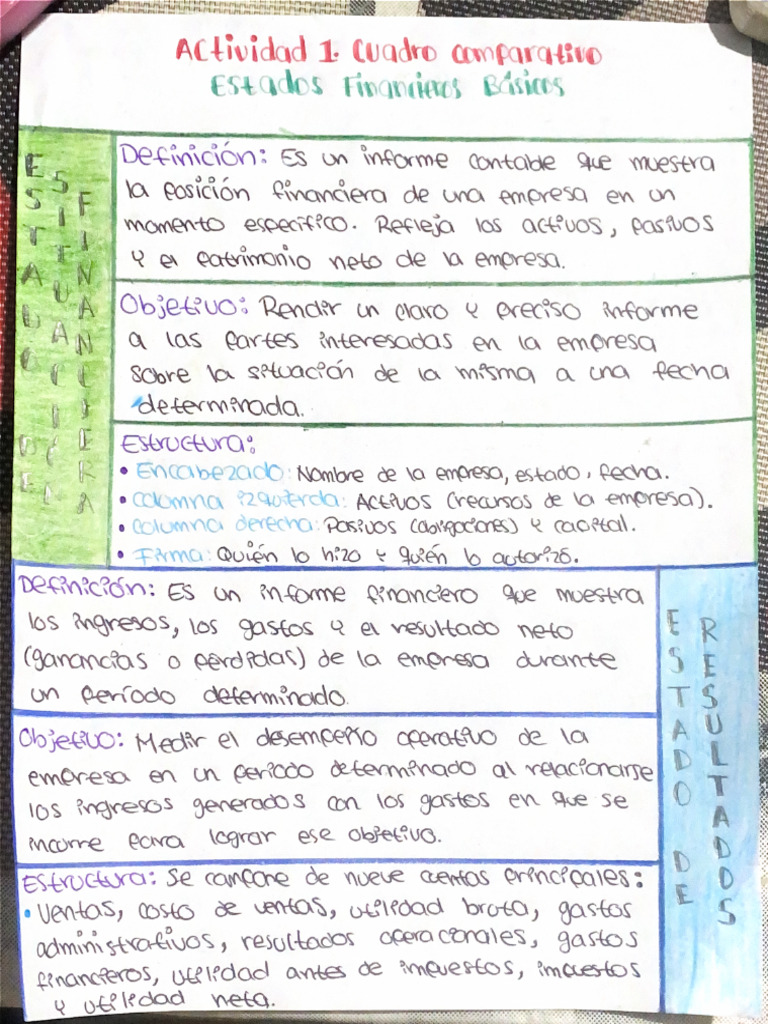 Actividad 1. Cuadro comparativo
Estados Financieros Básicos
ESTADO DE
SITUACIÓN
FINANCIERA
Definición: Es un informe contable que muestra
la posición financiera de una empresa en un
momento específico. Refleja los activos, pasivos
y el patrimonio neto de la empresa.
Objetivo: Rendir un claro y preciso informe
a las partes interesadas en la empresa
sobre la situación de la misma a una fecha
determinada.
Estructura:
• Encabezado: Nombre de la empresa, estado, fecha.
• Columna izquierda: Activos (recursos de la empresa).
• Columna derecha: Pasivos (obligaciones) y capital.
• Firma: Quién lo hizo y quién lo autorizó.
Definición: Es un informe financiero que muestra
los ingresos, los gastos y el resultado neto
(ganancias o pérdidas) de la empresa durante
un período determinado.
Objetivo: Medir el desempeño operativo de la
empresa en un periodo determinado al relacionarse
los ingresos generados con los gastos en que se
incurre para lograr ese objetivo.
Estructura: Se compone de nueve cuentas principales:
• Ventas, costo de ventas, utilidad bruta, gastos
administrativos, resultados operacionales, gastos
financieros, utilidad antes de impuestos, impuestos
y utilidad neta.
ESTADO DE
RESULTADOS